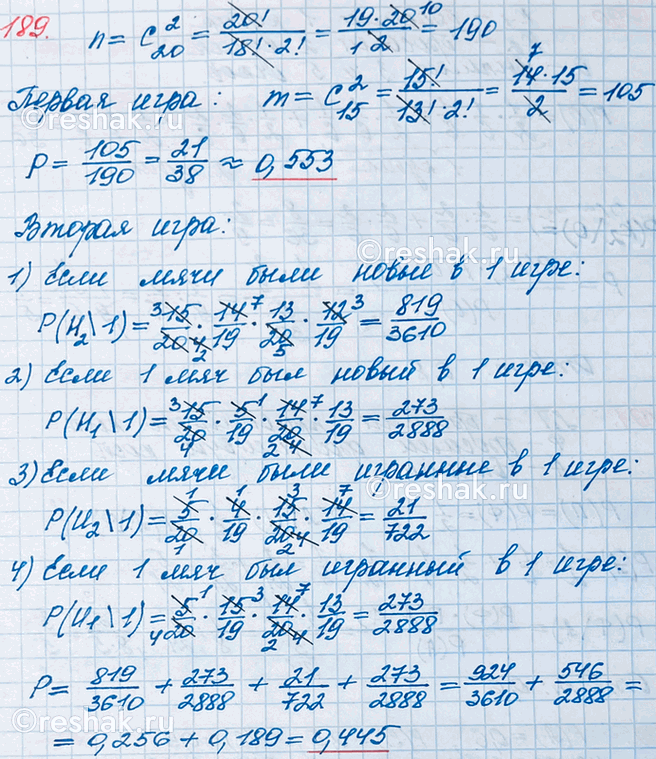 189. n = C₂₀² = 20!/(18!·2!) = 19·20¹⁰/(1·2) = 190
Первая игра: m = C₁₅² = 15!/(13!·2!) = ⁷14·15/2 = 105
P = 105/190 = 21/38 ≈ 0,553
Вторая игра:
1) Если мячи были новые в 1 игре:
P(H₂\1) = ³15/20₄ · 14⁷/19₂ · 13/20₅ · 12³/19 = 819/3610
2) Если 1 мяч был новый в 1 игре:
P(H₁\1) = ³15/20₄ · 5¹/19 · 14⁷/20₂₄ · 13/19 = 273/2888
3) Если мячи были игранные в 1 игре:
P(U₂\1) = 5¹/20₁ · 4¹/19 · 15³/20₂₄ · 14⁷/19 = 21/722
4) Если 1 мяч был игранный в 1 игре:
P(U₁\1) = 5¹/₄20 · 15³/19 · 14⁷/20₂₄ · 13/19 = 273/2888
P = 819/3610 + 273/2888 + 21/722 + 273/2888 = 924/3610 + 546/2888 =
= 0,256 + 0,189 = 0,445
©reshak.ru